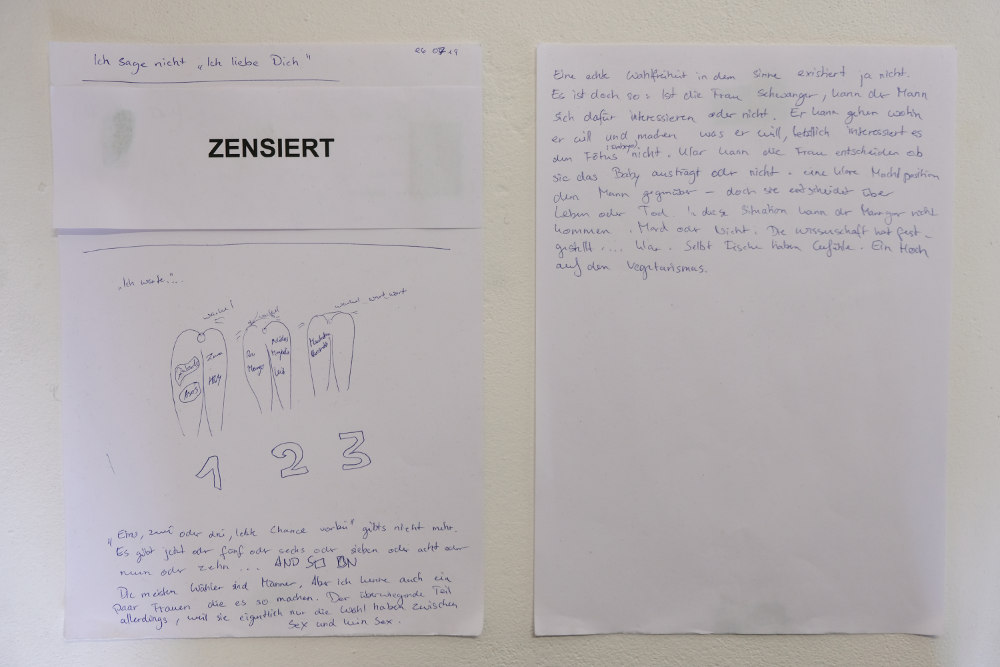 26 07 19
Ich sage nicht „Ich liebe Dich"
ZENSIERT
„Ich warte"...
wackel
wackel
Zalando
Asos
Zara
H&M
Mango
1 2 3
„Eins, zwei oder drei, letzte Chance vorbei" gibts nicht mehr.
Es gibt jetzt oder fünf oder sechs oder sieben oder acht oder
neun oder zehn ... AND SO ON
Die meisten Wähler sind Männer. Aber ich kenne auch ein
paar Frauen die es so machen. Der überwiegende Teil
allerdings, weil sie eigentlich nur die Wahl haben zwischen
Sex und kein Sex.
Eine echte Wahlfreiheit in dem Sinne existiert ja nicht.
Es ist doch so: Ist die Frau schwanger, kann der Mann
sich dafür interessieren oder nicht. Er kann gehen wohin
er will und machen was er will, letztlich interessiert es
den Fötus nicht. Klar kann die Frau entscheiden ob
sie das Baby austrägt oder nicht. eine klare Machtposition
dem Mann gegenüber – doch sie entscheidet über
Leben oder Tod. In diese Situation kann der Mann gar nicht
kommen. Mord oder Nicht. Die Wissenschaft hat fest-
gestellt .... klar. Selbst Fische haben Gefühle. Ein Hoch
auf den Vegetarismus.